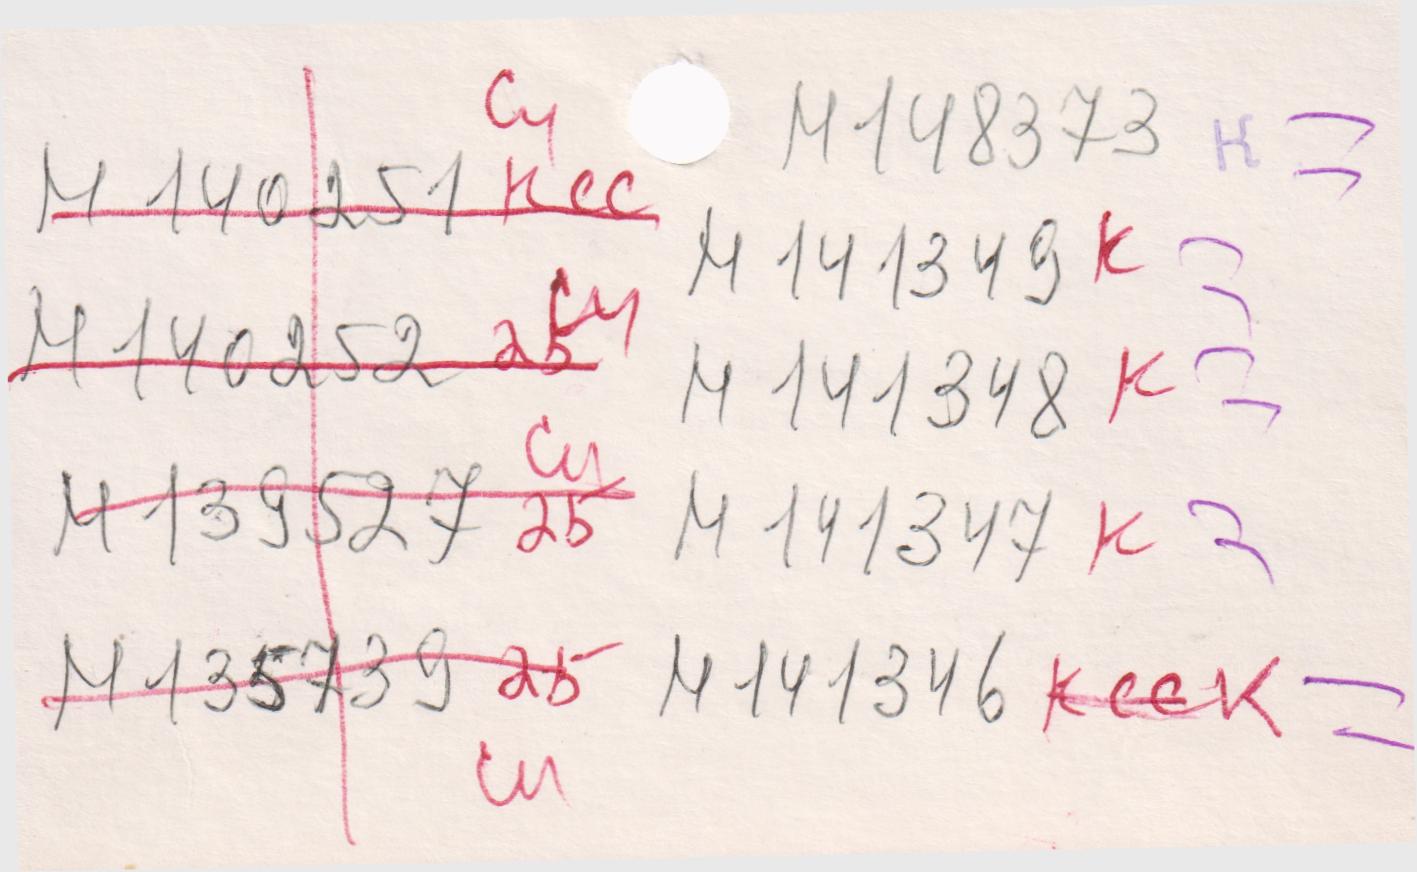 Сч
М 140251 ксс
Сч
М 140252 аб
Сч
М 139527 аб
М 135739 аб
Сч
М 148373 К
М 141349 К
М 141348 К
М 141347 К
М 141346 ксс К